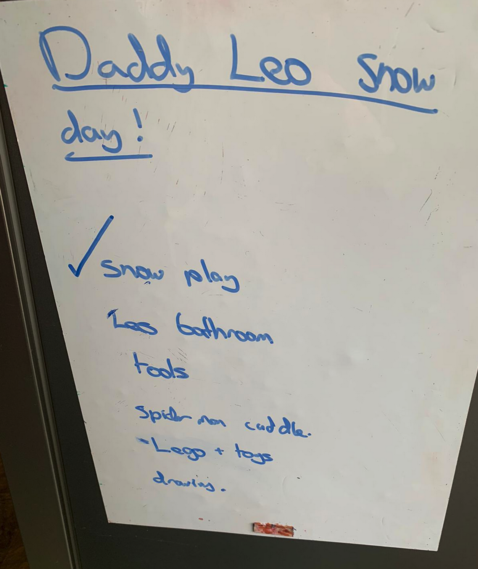 Daddy Leo snow
day!
✓ snow play
Leos bathroom
tools
spider man cuddle.
- Lego + toys
drawing.